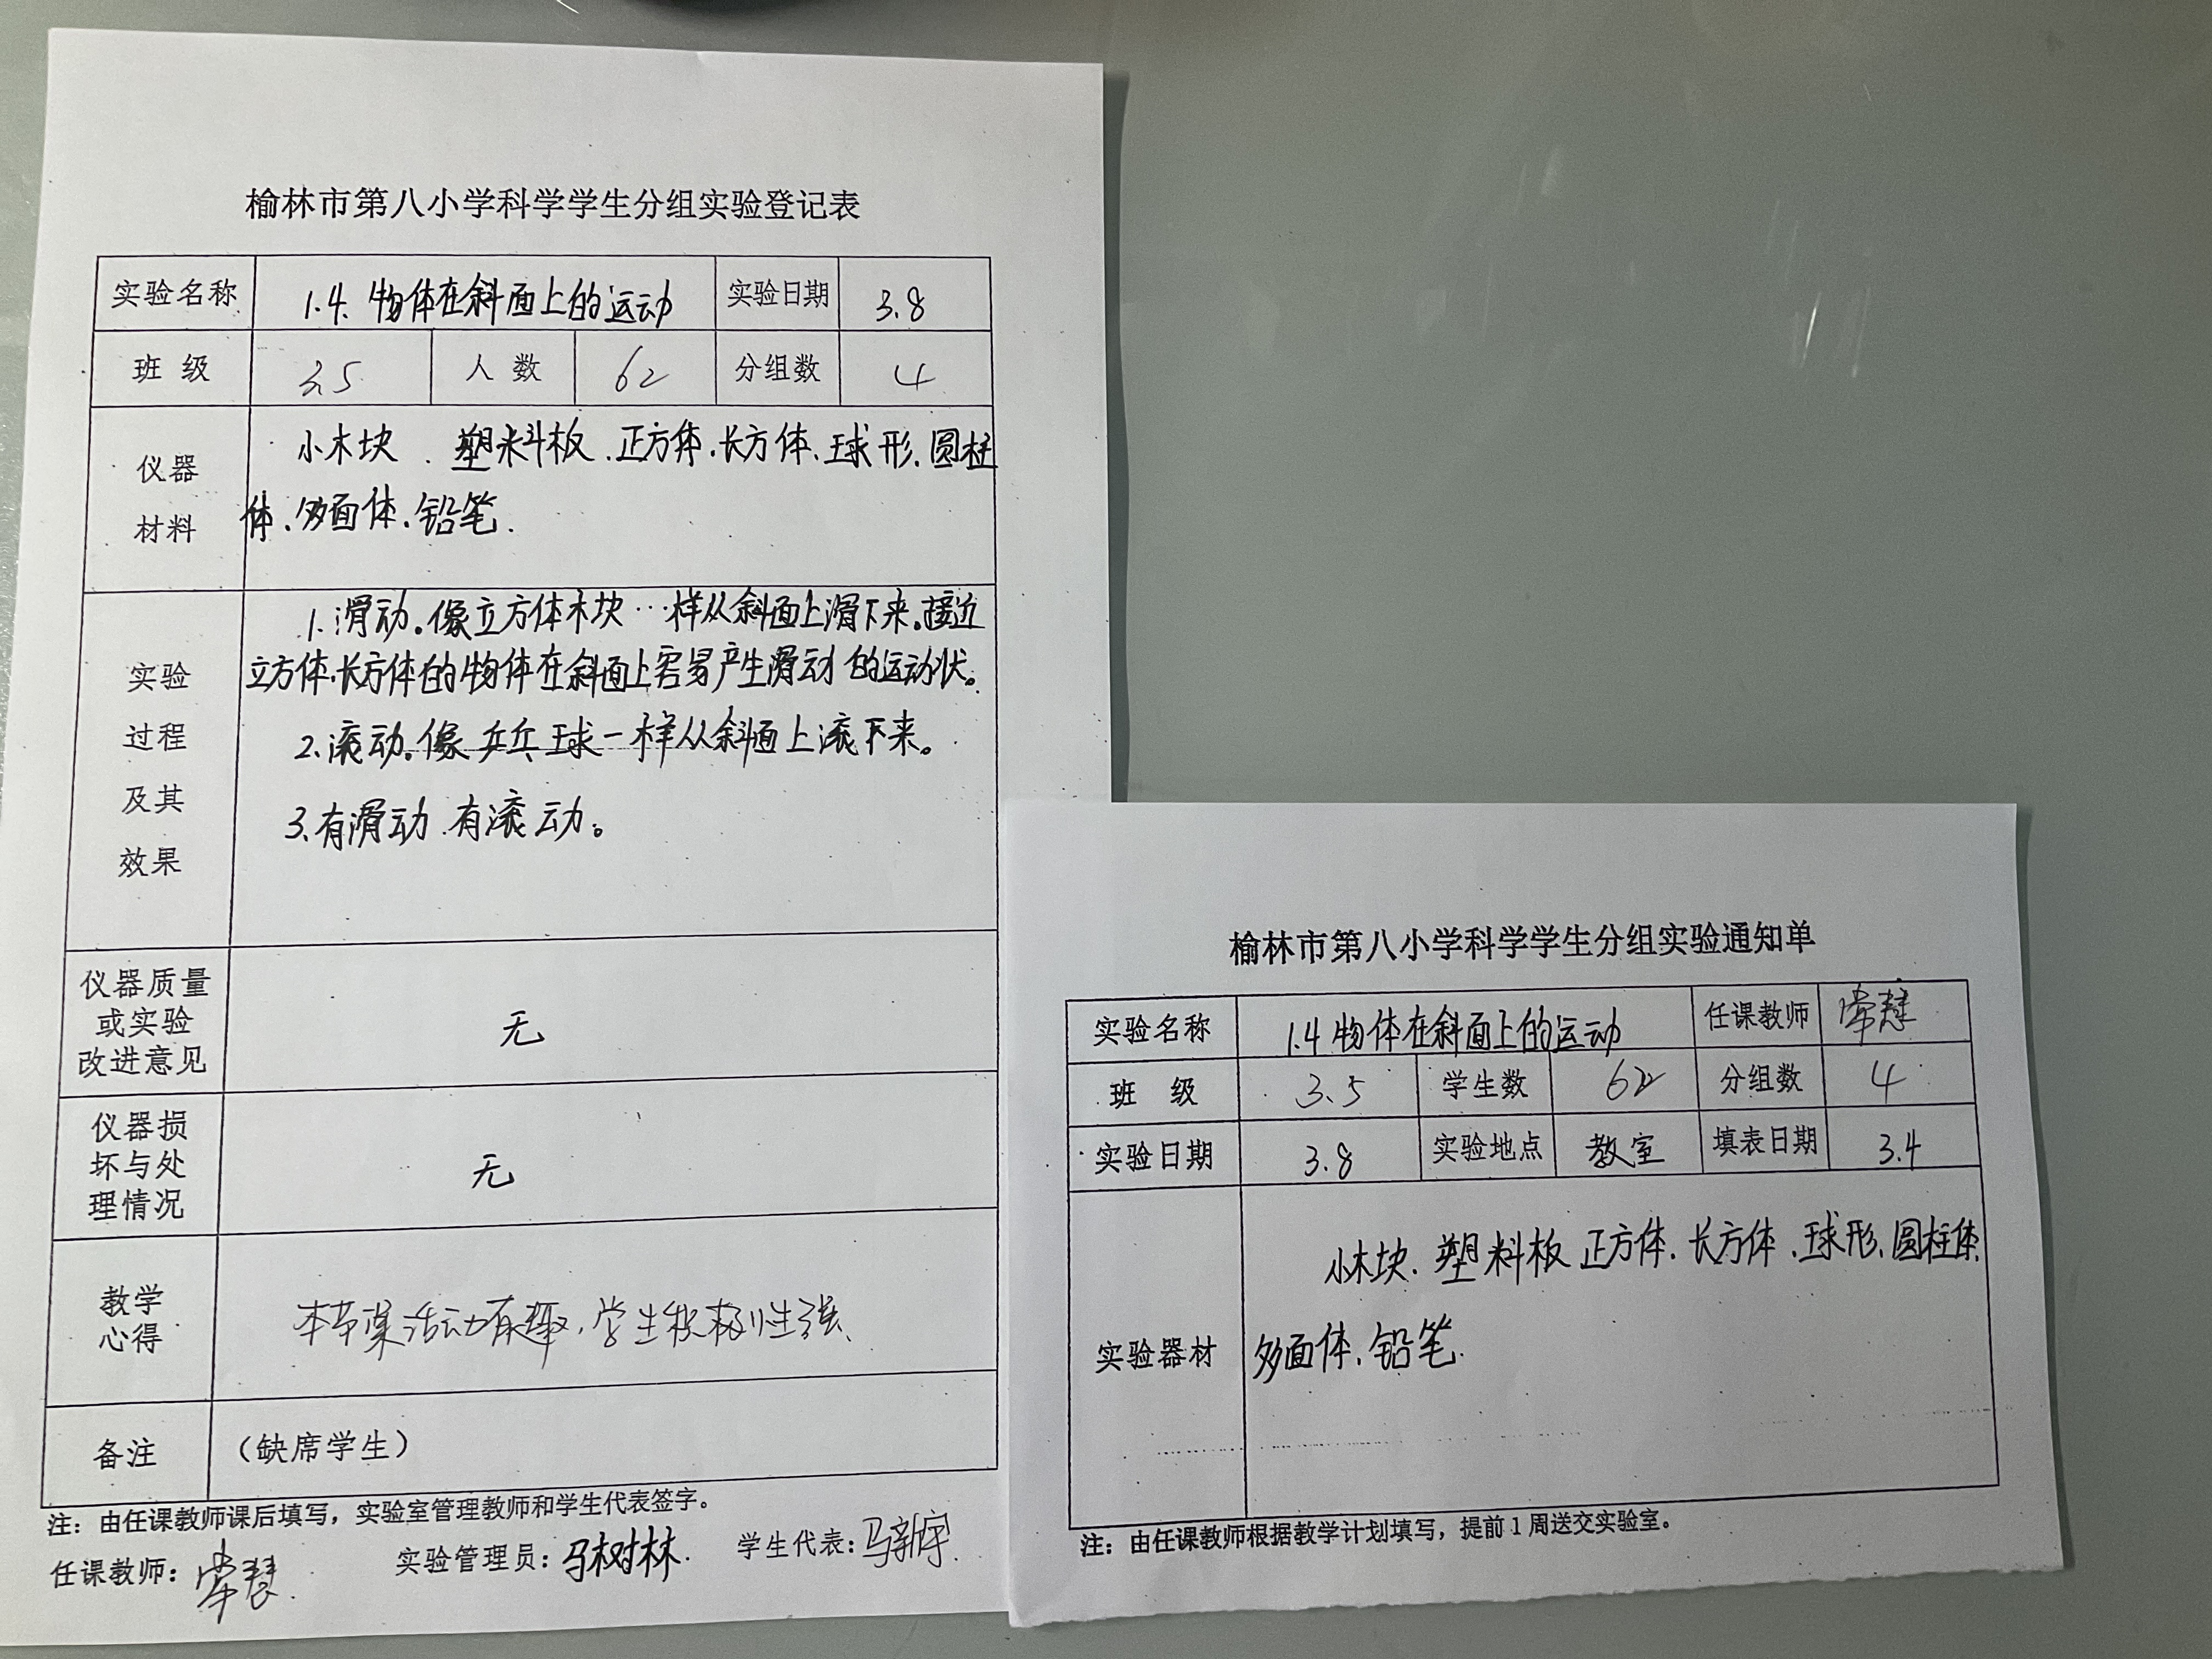 榆林市第八小学科学学生分组实验登记表
实验名称 1.4. 物体在斜面上的运动 实验日期 3.8
班 级 3.5 人 数 62 分组数 4
仪器
材料
小木块、塑料板、正方体、长方体、球形、圆柱
体、多面体、铅笔.
实验
过程
及其
效果
1. 滑动。像立方体木块…样从斜面上滑下来。接近
立方体、长方体的物体在斜面上容易产生滑动的运动状。
2. 滚动。像乒乓球一样从斜面上滚下来。
3. 有滑动、有滚动。
仪器质量
或实验
改进意见
无
仪器损
坏与处
理情况
无
教学
心得
本节课活动有趣,学生积极性强、
备注 （缺席学生）
注：由任课教师课后填写，实验室管理教师和学生代表签字。
任课教师：常慧. 实验管理员：马树林. 学生代表：马新宇.
榆林市第八小学科学学生分组实验通知单
实验名称 1.4 物体在斜面上的运动 任课教师 常慧
班 级 3.5 学生数 62 分组数 4
实验日期 3.8 实验地点 教室 填表日期 3.4
实验器材
小木块、塑料板 正方体、长方体、球形、圆柱体
多面体、铅笔.
注：由任课教师根据教学计划填写，提前 1 周送交实验室。